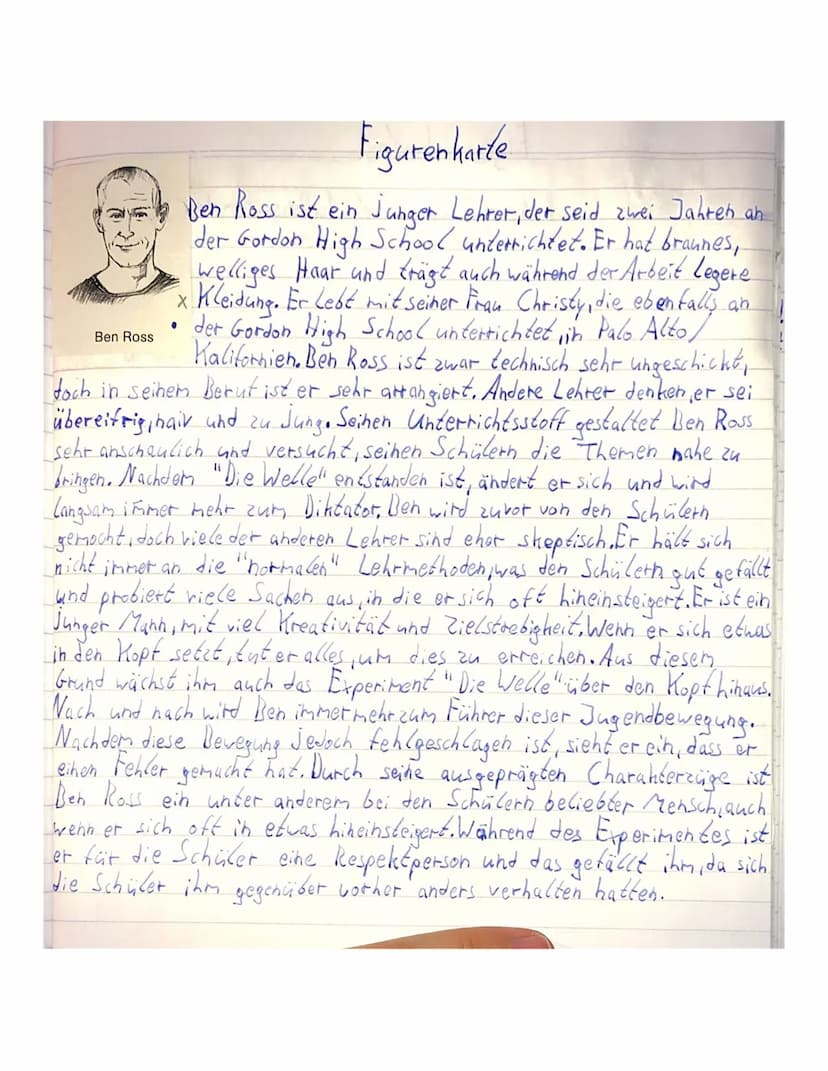 Figurenkarte
Ben Ross ist ein junger Lehrer, der seid zwei Jahren an
der Gordon High School unterrichtet. Er hat braunes,
welliges Haar und trägt auch während der Arbeit legere
x Kleidung. Er lebt mit seiner Frau Christy, die ebenfalls an
Ben Ross
• der Gordon High School unterrichtet, in Palo Alto/
Kalifornien. Ben Ross ist zwar technisch sehr ungeschickt,
doch in seinem Beruf ist er sehr arrangiert. Andere Lehrer denken, er sei
übereifrig, naiv und zu jung. Seinen Unterrichtsstoff gestaltet Ben Ross
sehr anschaulich und versucht, seinen Schülern die Themen nahe zu
bringen. Nachdem "Die Welle" entstanden ist, ändert er sich und wird
langsam immer mehr zum Diktator. Ben wird zuvor von den Schülern
gemocht, doch viele der anderen Lehrer sind eher skeptisch. Er hält sich
nicht immer an die "normalen" Lehrmethoden, was den Schülern gut gefällt
und probiert viele Sachen aus, in die er sich oft hineinsteigert. Er ist ein
junger Mann, mit viel Kreativität und Zielstrebigkeit. Wenn er sich etwas
in den Kopf setzt, tut er alles, um dies zu erreichen. Aus diesem
Grund wächst ihm auch das Experiment "Die Welle" über den Kopf hinaus.
Nach und nach wird Ben immer mehr zum Führer dieser Jugendbewegung.
Nachdem diese Bewegung jedoch fehlgeschlagen ist, sieht er ein, dass er
einen Fehler gemacht hat. Durch seine ausgeprägten Charakterzüge ist
Ben Ross ein unter anderem bei den Schülern beliebter Mensch, auch
wenn er sich oft in etwas hineinsteigert. Während des Experimentes ist
er für die Schüler eine Respektperson und das gefällt ihm, da sich
die Schüler ihm gegenüber vorher anders verhalten hatten.